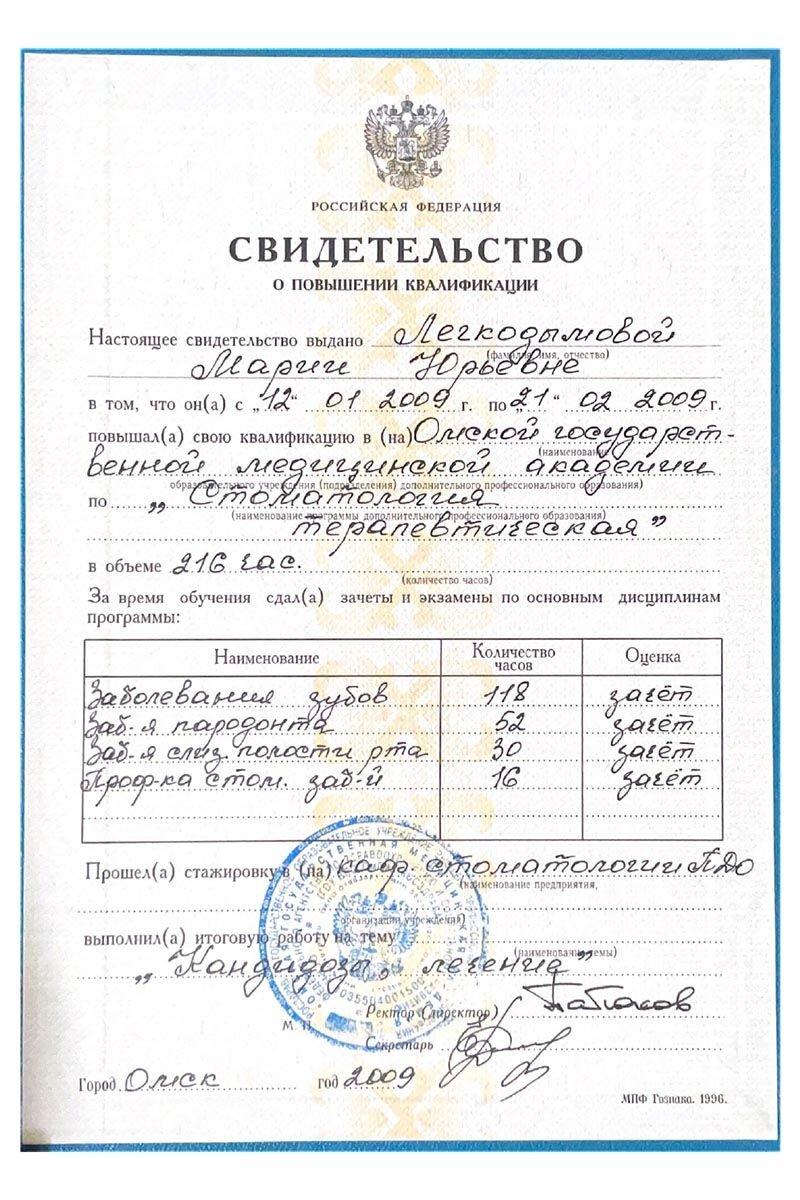 РОССИЙСКАЯ ФЕДЕРАЦИЯ
СВИДЕТЕЛЬСТВО
О ПОВЫШЕНИИ КВАЛИФИКАЦИИ
Настоящее свидетельство выдано Легкодымовой
(фамилия, имя, отчество)
Марии Юрьевне
в том, что он(а) с „12“ 01 2009 г. по „21“ 02 2009 г.
повышал(а) свою квалификацию в (на) Омской государст-
(наименование
венной медицинской академии
образовательного учреждения (подразделения) дополнительного профессионального образования)
по „Стоматология
(наименование программы дополнительного профессионального образования)
терапевтическая”
в объеме 216 час.
(количество часов)
За время обучения сдал(а) зачеты и экзамены по основным дисциплинам
программы:
Наименование Количество часов Оценка
Заболевания зубов 118 зачёт
Заб-я пародонта 52 зачёт
Заб-я слиз. полости рта 30 зачёт
Проф-ка стом. заб-й 16 зачёт
Прошел(а) стажировку в (на) каф. стоматологии ПДО
(наименование предприятия,
организации учреждения)
выполнил(а) итоговую работу на тему
(наименование темы)
„Кандидозы, лечение”
Ректор (директор)
М. П.
Секретарь
Город Омск год 2009
МПФ Гознака. 1996.